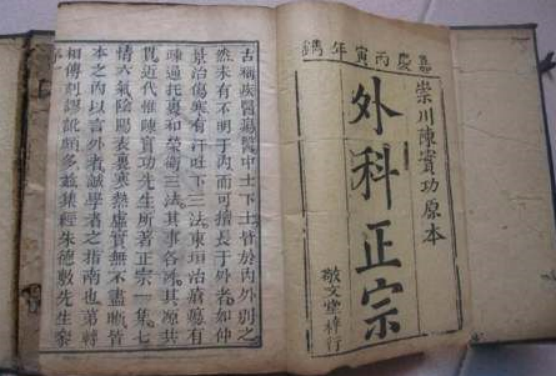 嘉慶丙寅年鐫
崇川陳實功原本
外科正宗
敬文堂梓行
古稱疾醫瘍醫中士下士皆於內外別之
然未有不明于內而可擅長于外者如仲
景治傷寒有汗吐下三法東垣治瘡瘍有
疎通托裏和榮衛三法其事各殊其源共
貫近代惟陳實功先生所著正宗一集七
情六氣陰陽表裏寒熱虛實無不盡晰皆
本之內以言外者誠學者之指南也第轉
相傳刻謬訛頗多茲集經朱德敷先生